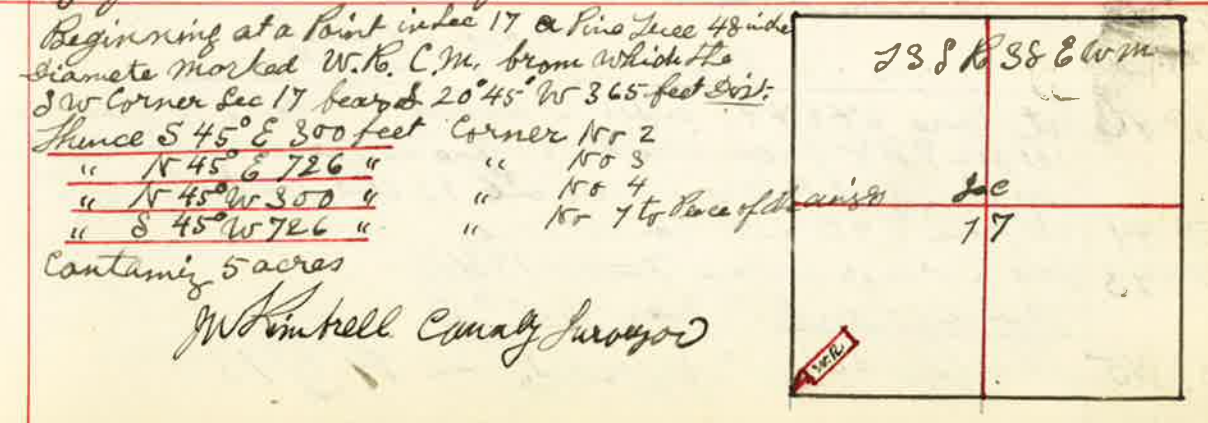 Beginning at a Point in Sec 17 a Pine Tree 48 inche
Diamete marked W.R. C.M. from which the
S W Corner Sec 17 bears S 20°45' W 365 feet Dist.
Thence S 45° E 300 feet Corner No 2
" N 45° E 726 " " No 3
" N 45° W 300 " " No 4
" S 45° W 726 " " No 1 to Place of
Containig 5 acres
JW Kimbrell County Surveyor
T 3 S R 38 E W M
Sec
17
W.R.